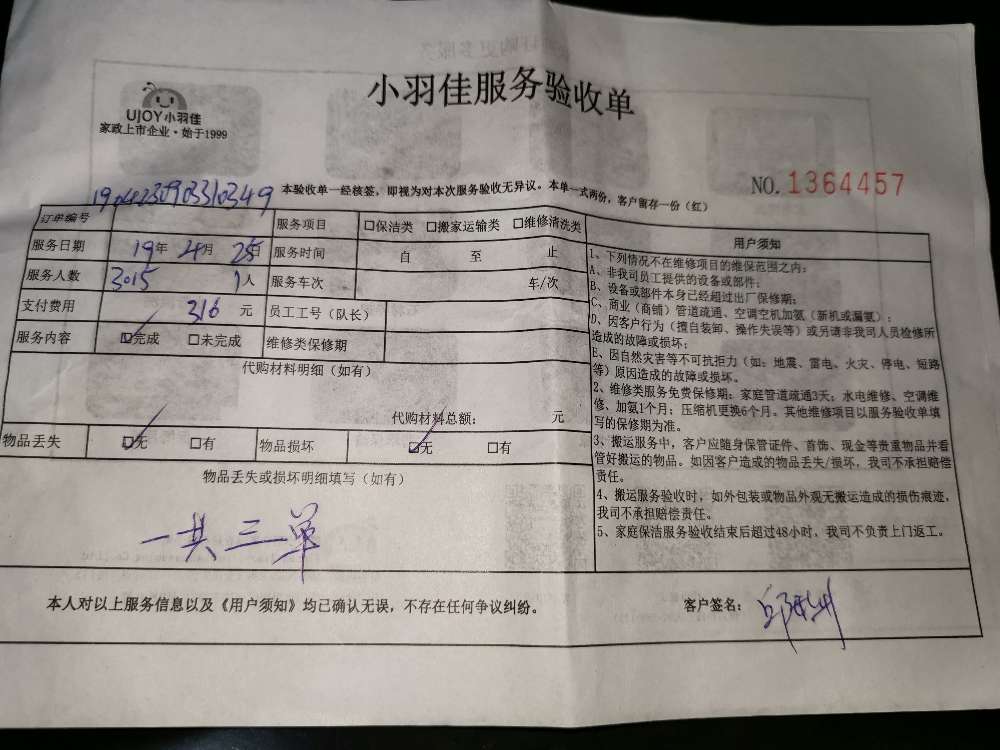 小羽佳服务验收单
UJOY小羽佳
家政上市企业·始于1999
NO.1364457
本验收单一经核签，即视为对本次服务验收无异议。本单一式两份，客户留存一份（红）
订单编号
服务项目 □保洁类 □搬家运输类 □维修清洗类
服务日期 19年 4月 25日 服务时间 自 至 止
服务人数 3015 1人 服务车次 车/次
支付费用 316 元 员工工号（队长）
服务内容 ☑完成 □未完成 维修类保修期
代购材料明细（如有）
代购材料总额： 元
物品丢失 ☑无 □有 物品损坏 ☑无 □有
物品丢失或损坏明细填写（如有）
一共三单
用户须知
1、下列情况不在维修项目的维保范围之内：
A、非我司员工提供的设备或部件；
B、设备或部件本身已经超过出厂保修期；
C、商业（商铺）管道疏通、空调空机加氨（新机或漏氨）；
D、因客户行为（擅自装卸、操作失误等）或另请非我司人员检修所
造成的故障或损坏；
E、因自然灾害等不可抗拒力（如：地震、雷电、火灾、停电、短路
等）原因造成的故障或损坏。
2、维修类服务免费保修期：家庭管道疏通3天；水电维修、空调维
修、加氨1个月；压缩机更换6个月。其他维修项目以服务验收单填
写的保修期为准。
3、搬运服务中，客户应随身保管证件、首饰、现金等贵重物品并看
管好搬运的物品。如因客户造成的物品丢失/损坏，我司不承担赔偿
责任。
4、搬运服务验收时，如外包装或物品外观无搬运造成的损伤痕迹，
我司不承担赔偿责任。
5、家庭保洁服务验收结束后超过48小时，我司不负责上门返工。
本人对以上服务信息以及《用户须知》均已确认无误，不存在任何争议纠纷。
客户签名：